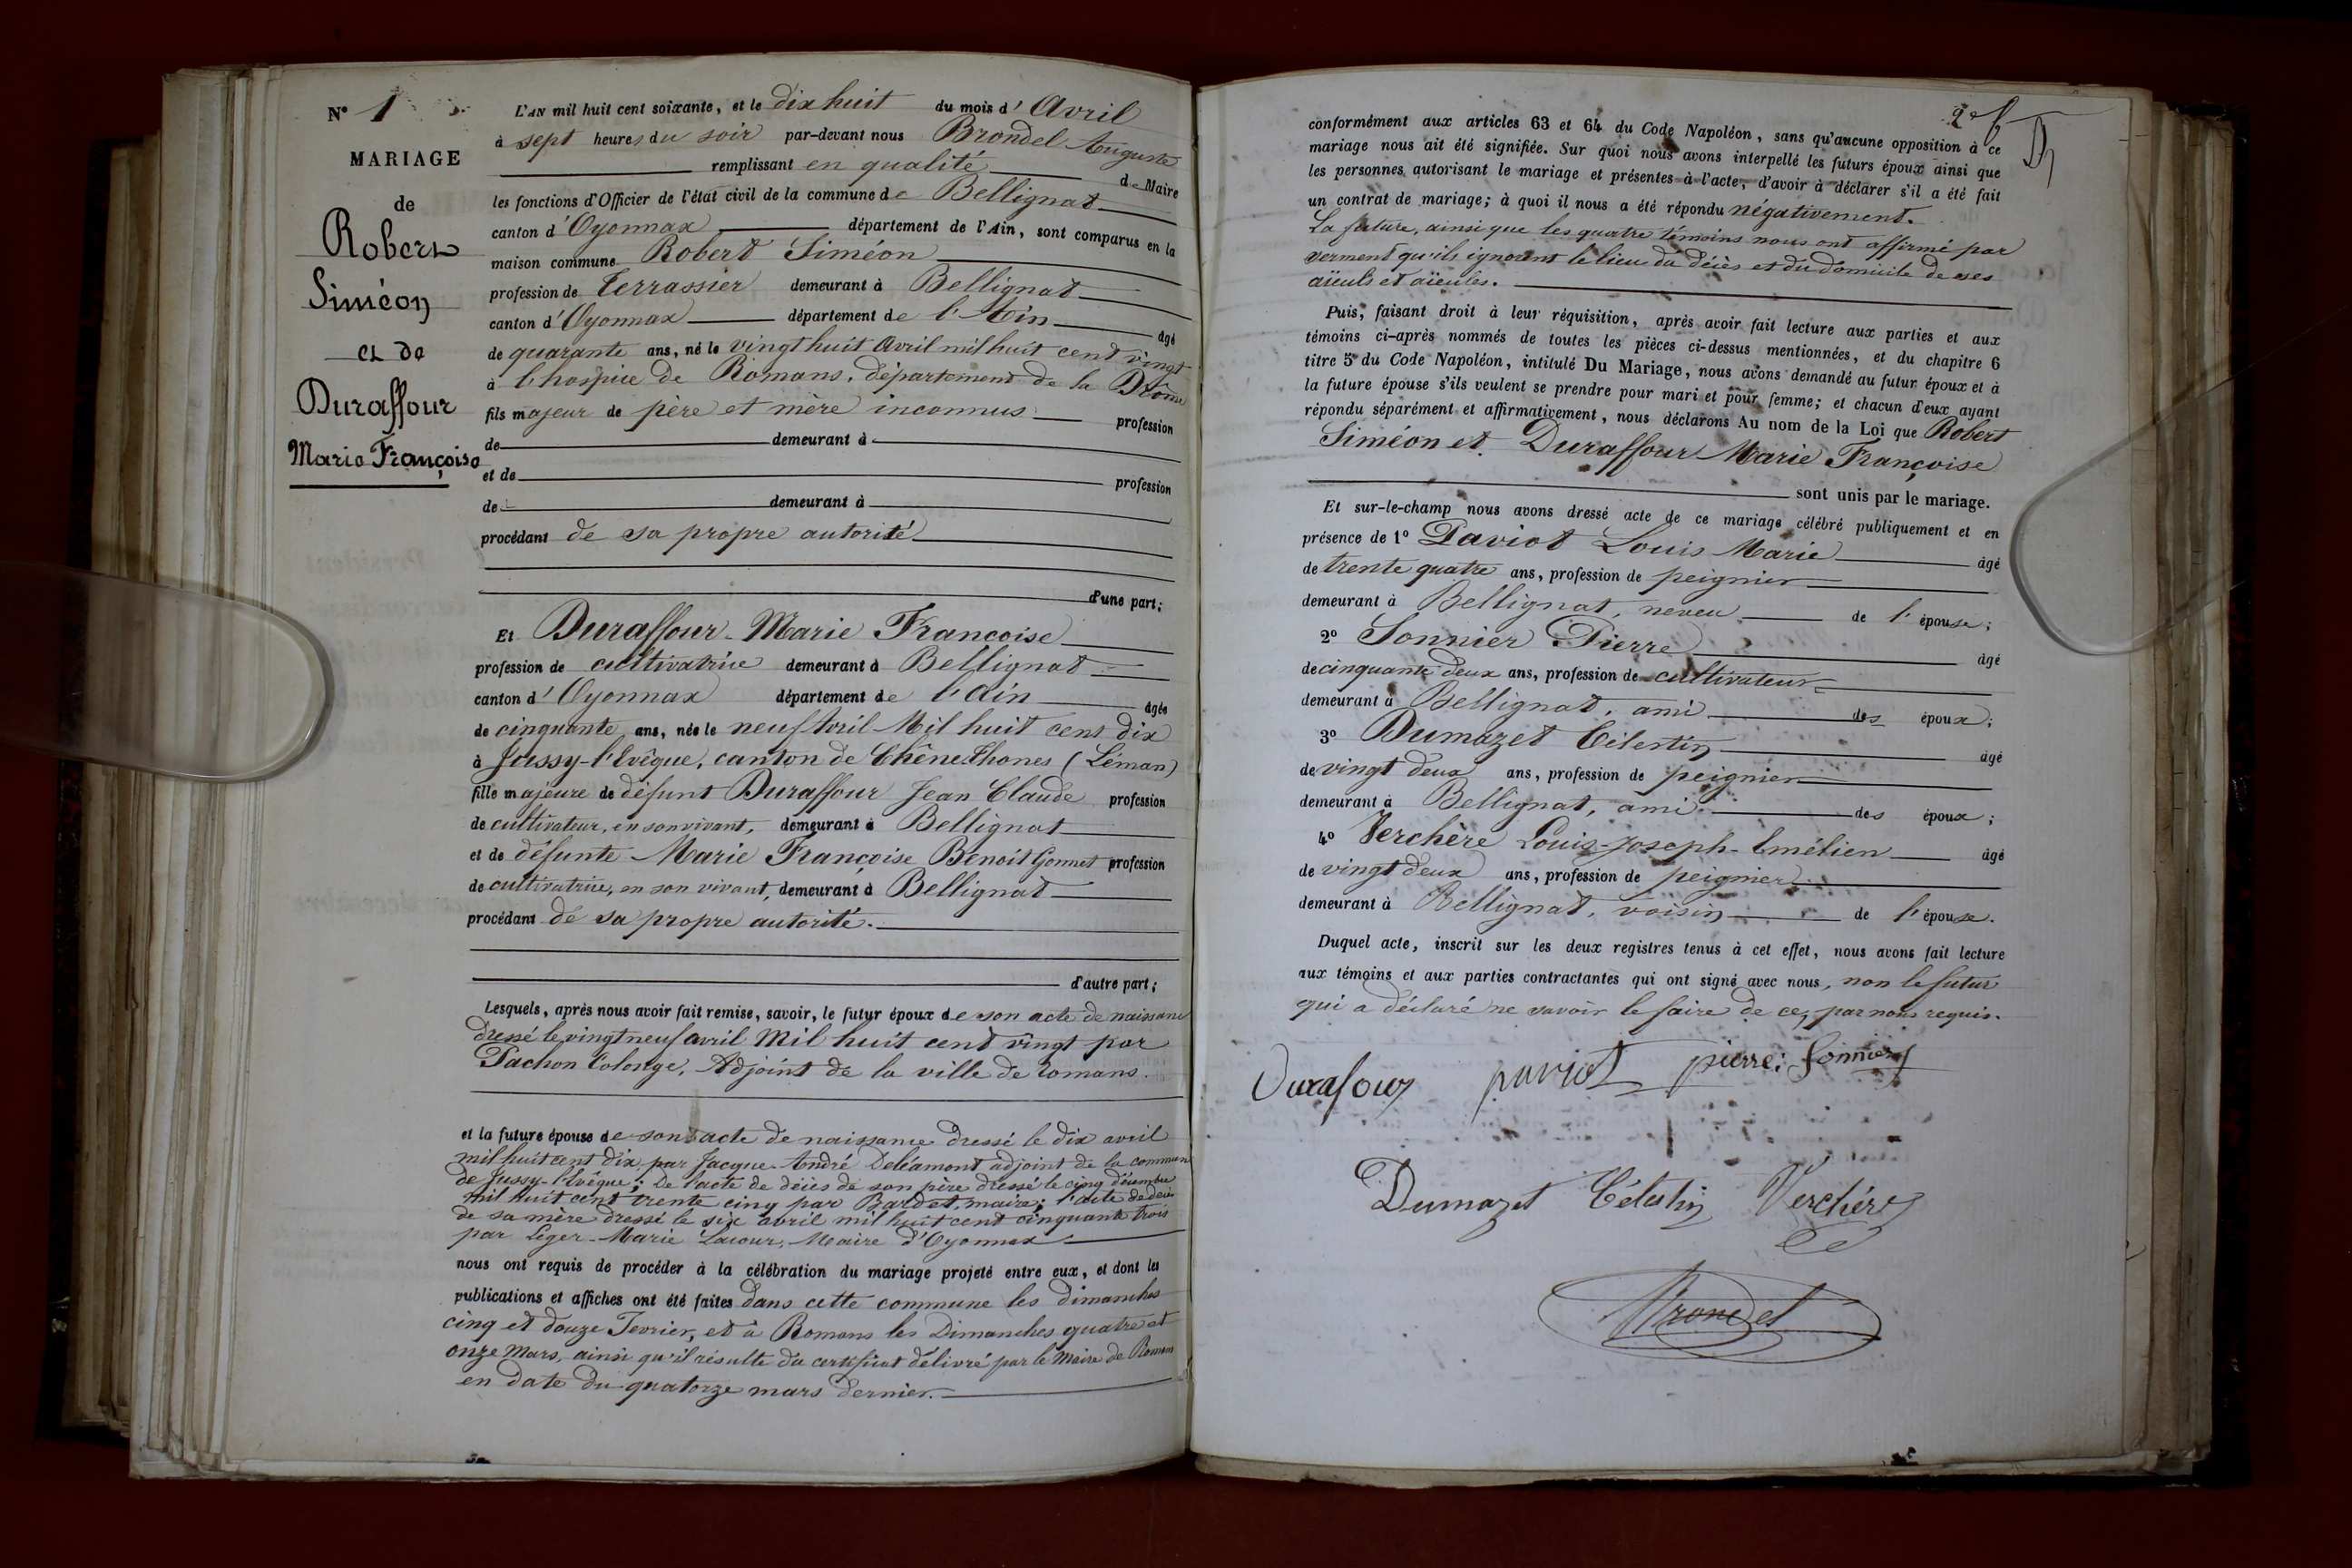 N° 1
MARIAGE
de
Robert
Siméon
et de
Duraffour
Marie Françoise
L'AN mil huit cent soixante, et le dix huit du mois d'Avril
à sept heures du soir par-devant nous Brondel Auguste
remplissant en qualité de Maire
les fonctions d'Officier de l'état civil de la commune de Bellignat
canton d'Oyonnax département de l'Ain, sont comparus en la
maison commune Robert Siméon
profession de Terrassier demeurant à Bellignat
canton d'Oyonnax département de l'Ain âgé
de quarante ans, né le vingt huit Avril mil huit cent vingt
à l'hospice de Romans, département de la Drôme
fils majeur de père et mère inconnus profession
de demeurant à
et de profession
de demeurant à
procédant de sa propre autorité
d'une part;
Et Duraffour Marie Francoise
profession de cultivatrice demeurant à Bellignat
canton d'Oyonnax département de l'Ain âgée
de cinquante ans, née le neuf Avril Mil huit cent dix
à Jussy-l'Evêque, canton de Chêne-Thones (Léman)
fille majeure de défunt Duraffour Jean Claude profession
de cultivateur, en son vivant, demeurant à Bellignat
et de défunte Marie Françoise Benoit Gonnet profession
de cultivatrice, en son vivant, demeurant à Bellignat
procédant de sa propre autorité.
d'autre part;
Lesquels, après nous avoir fait remise, savoir, le futur époux de son acte de naissance
dressé le vingt neuf avril Mil huit cent vingt par
Pachon Colonge, Adjoint de la ville de Romans.
et la future épouse de son acte de naissance dressé le dix avril
mil huit cent dix par Jacque André Deléamont adjoint de la commune
de Jussy-l'Evêque; De l'acte de décès de son père dressé le cinq décembre
mil huit cent trente cinq par Bardet, maire; l'acte de décès
de sa mère dressé le six avril mil huit cent cinquante trois
par Léger-Marie Lacour, Maire d'Oyonnax
nous ont requis de procéder à la célébration du mariage projeté entre eux, et dont les
publications et affiches ont été faites dans cette commune les dimanches
cinq et douze Fevrier, et à Romans les Dimanches quatre et
onze Mars, ainsi qu'il résulte du certificat délivré par le Maire de Romans
en date du quatorze mars dernier.
conformément aux articles 63 et 64 du Code Napoléon, sans qu'aucune opposition à ce
mariage nous ait été signifiée. Sur quoi nous avons interpellé les futurs époux ainsi que
les personnes autorisant le mariage et présentes à l'acte, d'avoir à déclarer s'il a été fait
un contrat de mariage; à quoi il nous a été répondu négativement.
La future, ainsi que les quatre témoins nous ont affirmé par
serment qu'ils ignorent le lieu du décès et du domicile de ses
aïeuls et aïeules.
Puis, faisant droit à leur réquisition, après avoir fait lecture aux parties et aux
témoins ci-après nommés de toutes les pièces ci-dessus mentionnées, et du chapitre 6
titre 5 du Code Napoléon, intitulé Du Mariage, nous avons demandé au futur époux et à
la future épouse s'ils veulent se prendre pour mari et pour femme; et chacun d'eux ayant
répondu séparément et affirmativement, nous déclarons Au nom de la Loi que Robert
Siméon et Duraffour Marie Françoise
sont unis par le mariage.
Et sur-le-champ nous avons dressé acte de ce mariage célébré publiquement et en
présence de 1° Paviot Louis Marie âgé
de trente quatre ans, profession de peignier
demeurant à Bellignat, neveu de l'épouse;
2° Sonnier Pierre âgé
de cinquante deux ans, profession de cultivateur
demeurant à Bellignat, ami des époux;
3° Dumazet Célestin âgé
de vingt deux ans, profession de peignier
demeurant à Bellignat, ami des époux;
4° Verchère Louis-Joseph-Emélien âgé
de vingt deux ans, profession de peignier
demeurant à Bellignat, voisin de l'épouse.
Duquel acte, inscrit sur les deux registres tenus à cet effet, nous avons fait lecture
aux témoins et aux parties contractantes qui ont signé avec nous, non le futur
qui a déclaré ne savoir le faire de ce, par nous requis.
Durafour paviot pierre: Sonnier
Dumazet Célestin Verchère
Brondel